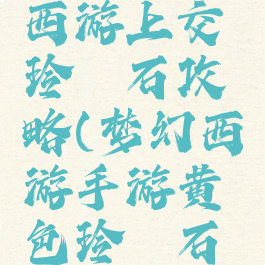 西游上交
玲 石攻
略(梦幻西
游手游黄
色玲 石